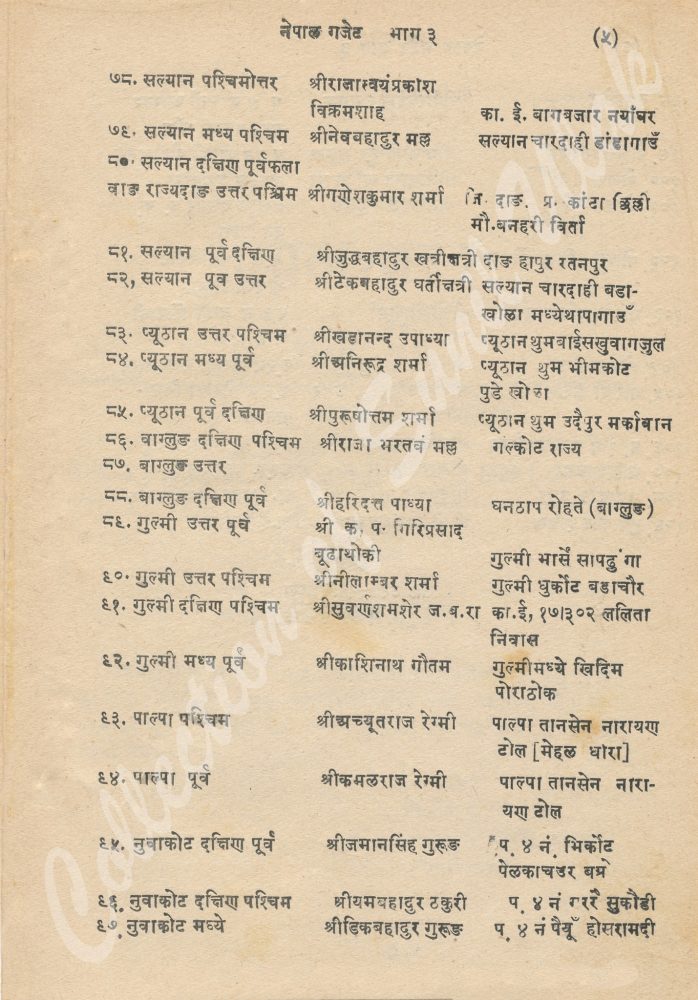 नेपाल गजेट भाग ३ (५)
७८. सल्यान पश्चिमोत्तर श्रीराजास्वयंप्रकाश
विक्रमशाह का. ई. बागबजार नयाँघर
७९. सल्यान मध्य पश्चिम श्रीनेवबहादुर मल्ल सल्यान चारदाही डांडागाउँ
८०. सल्यान दक्षिण पूर्वफला
वाङ राज्यदाङ उत्तर पश्चिम श्रीगणेशकुमार शर्मा जि. दाङ. प्र. कांटा छिल्ली
मौ.बनहरी विर्ता
८१. सल्यान पूर्व दक्षिण श्रीजुद्धबहादुर खत्रीक्षत्री दाङ हापुर रतनपुर
८२, सल्यान पूव उत्तर श्रीटेकबहादुर घर्तीक्षत्री सल्यान चारदाही बडा-
खोला मध्येथापागाउँ
८३. प्यूठान उत्तर पश्चिम श्रीखडानन्द उपाध्या प्यूठानथुमबाईसखुवागजुल
८४. प्यूठान मध्य पूर्व श्रीअनिरूद्र शर्मा प्यूठान थुम भीमकोट
पुडे खोला
८५. प्यूठान पूर्व दक्षिण श्रीपुरूषोत्तम शर्मा प्यूठान थुम उदैपुर मर्कावान
८६. वाग्लुङ दक्षिण पश्चिम श्रीराजा भरतबं मल्ल गल्कोट राज्य
८७. बाग्लुङ उत्तर
८८. बाग्लुङ दक्षिण पूर्व श्रीहरिदत्त पाध्या घनठाप रोहते (बाग्लुङ)
८९. गुल्मी उत्तर पूर्व श्री क. प. गिरिप्रसाद
बूढाथोकी गुल्मी भार्से सापदुंगा
९०. गुल्मी उत्तर पश्चिम श्रीनीलाम्बर शर्मा गुल्मी धुर्कोट बडाचौर
९१. गुल्मी दक्षिण पश्चिम श्रीसुवर्णशमशेर ज.ब.रा का.ई, १७।३०२ ललिता
निवास
९२. गुल्मी मध्य पूर्व श्रीकाशिनाथ गौतम गुल्मीमध्ये खिदिम
पोराठोक
९३. पाल्पा पश्चिम श्रीअच्यूतराज रेग्मी पाल्पा तानसेन नारायण
टोल [मेहल धारा]
९४. पाल्पा पूर्व श्रीकमलराज रेग्मी पाल्पा तानसेन नारा-
यण टोल
९५. नुवाकोट दक्षिण पूर्व श्रीजमानसिंह गुरूङ प. ४ नं. भिर्कोट
पेलकाचउर
९६. नुवाकोट दक्षिण पश्चिम श्रीयमबहादुर ठकुरी प. ४ नं सुकौडी
९७. नुवाकोट मध्ये श्रीडिकबहादुर गुरूङ प. ४ नं पैयूँ होसरामदी
Collection of